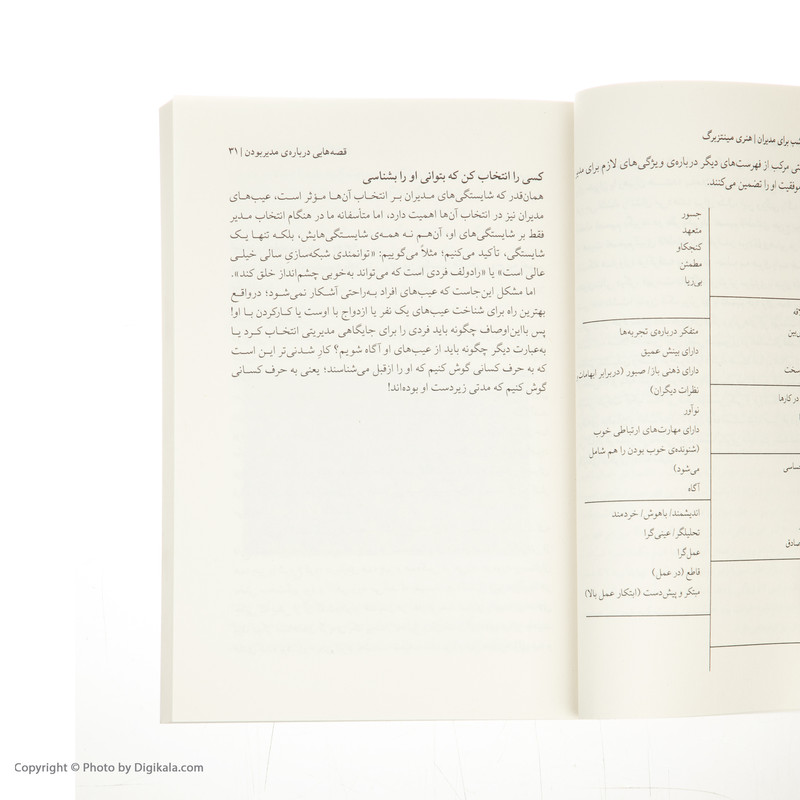 شب برای مدیران | هنری مینتزبرگ
مرکب از فهرست‌های دیگر درباره‌ی ویژگی‌های لازم برای
موفقیت او را تضمین می‌کنند.
جسور
متعهد
کنجکاو
مطمئن
بی‌ریا
متفکر درباره‌ی تجربه‌ها
دارای بینش عمیق
دارای ذهنی باز/ صبور (دربرابر ابهامات،
نظرات دیگران)
نوآور
دارای مهارت‌های ارتباطی خوب
(شنونده‌ی خوب بودن را هم شامل
می‌شود)
آگاه
اندیشمند/ باهوش/ خردمند
تحلیلگر/ عینی‌گرا
عمل‌گرا
قاطع (در عمل)
مبتکر و پیش‌دست (ابتکار عمل بالا)
در کارها
صادق
قصه‌هایی درباره‌ی مدیربودن | ۳۱
کسی را انتخاب کن که بتوانی او را بشناسی
همان‌قدر که شایستگی‌های مدیران بر انتخاب آن‌ها مؤثر است، عیب‌های
مدیران نیز در انتخاب آن‌ها اهمیت دارد، اما متأسفانه ما در هنگام انتخاب مدیر
فقط بر شایستگی‌های او، آن‌هم نه همه‌ی شایستگی‌هایش، بلکه تنها یک
شایستگی، تأکید می‌کنیم؛ مثلاً می‌گوییم: «توانمندی شبکه‌سازی سالی خیلی
عالی است» یا «رادولف فردی است که می‌تواند به‌خوبی چشم‌انداز خلق کند».
اما مشکل این‌جاست که عیب‌های افراد به‌راحتی آشکار نمی‌شود؛ درواقع
بهترین راه برای شناخت عیب‌های یک نفر یا ازدواج با اوست یا کارکردن با او!
پس بااین‌اوصاف چگونه باید فردی را برای جایگاهی مدیریتی انتخاب کرد یا
به‌عبارت دیگر چگونه باید از عیب‌های او آگاه شویم؟ کار شدنی‌تر این است
که به حرف کسانی گوش کنیم که او را ازقبل می‌شناسند؛ یعنی به حرف کسانی
گوش کنیم که مدتی زیردست او بوده‌اند!
Copyright © Photo by Digikala.com